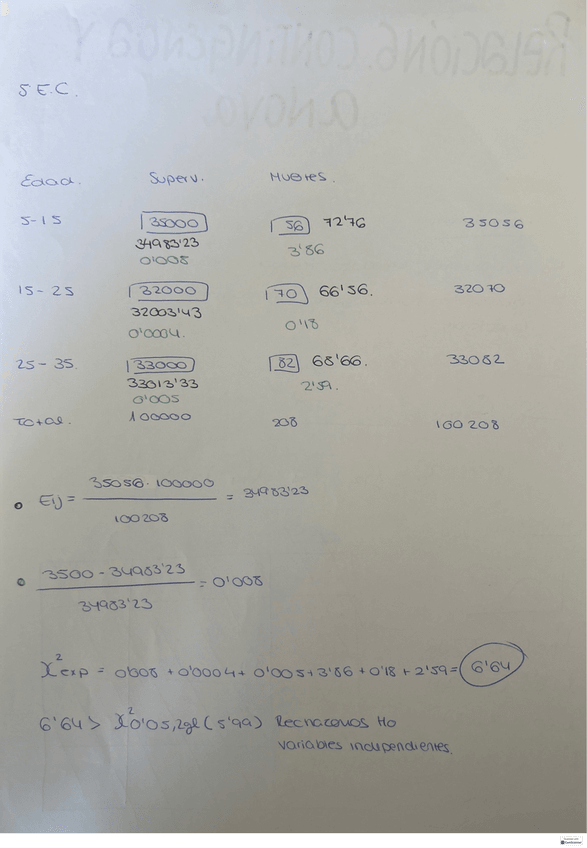 RELACIÓN 6. CONTINGENCIA Y
ANOVA.
5 E.C.
Edad. Superv. Muertes.
5-15 35000 56 72'76 35056
34983'23 3'86
0'008
15-25 32000 70 66'56. 32070
32003'43 0'18
0'0004.
25-35. 33000 82 68'66. 33082
33013'33 2'59.
0'005
Total. 100000 208 100208
• Eij = 35056·100000 / 100208 = 34983'23
• 3500 - 34983'23 / 34983'23 = 0'008
X² exp = 0'008 + 0'0004 + 0'005 + 3'86 + 0'18 + 2'59 = 6'64
6'64 > X² 0'05, 2gl (5'99) Rechazamos Ho
variables independientes.